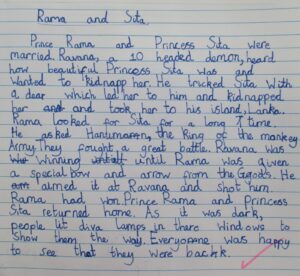 Rama and Sita.
Prince Rama and Princess Sita were
married. Ravana, a 10 headed demon, heard
how beautiful Princess Sita was and
wanted to kidnapp her. He tricked Sita with
a dear which led her to him and kidnapped
her and took her to his island, Lanka.
Rama looked for Sita for a long time.
He asked Hanuman, the King of the monkey
Army. They fought a great battle. Ravana was
winning until Rama was given
a special bow and arrow from the Gods. He
aimed it at Ravana and shot him.
Rama had won. Prince Rama and Princess
Sita returned home. As it was dark,
people lit diva lamps in there windows to
show them the way. Everyone was happy
to see that they were back.